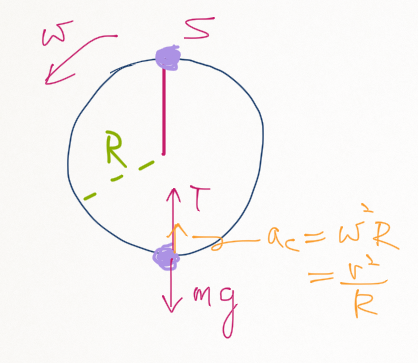 w S
R
T
a_c = w²R
= v²/R
mg